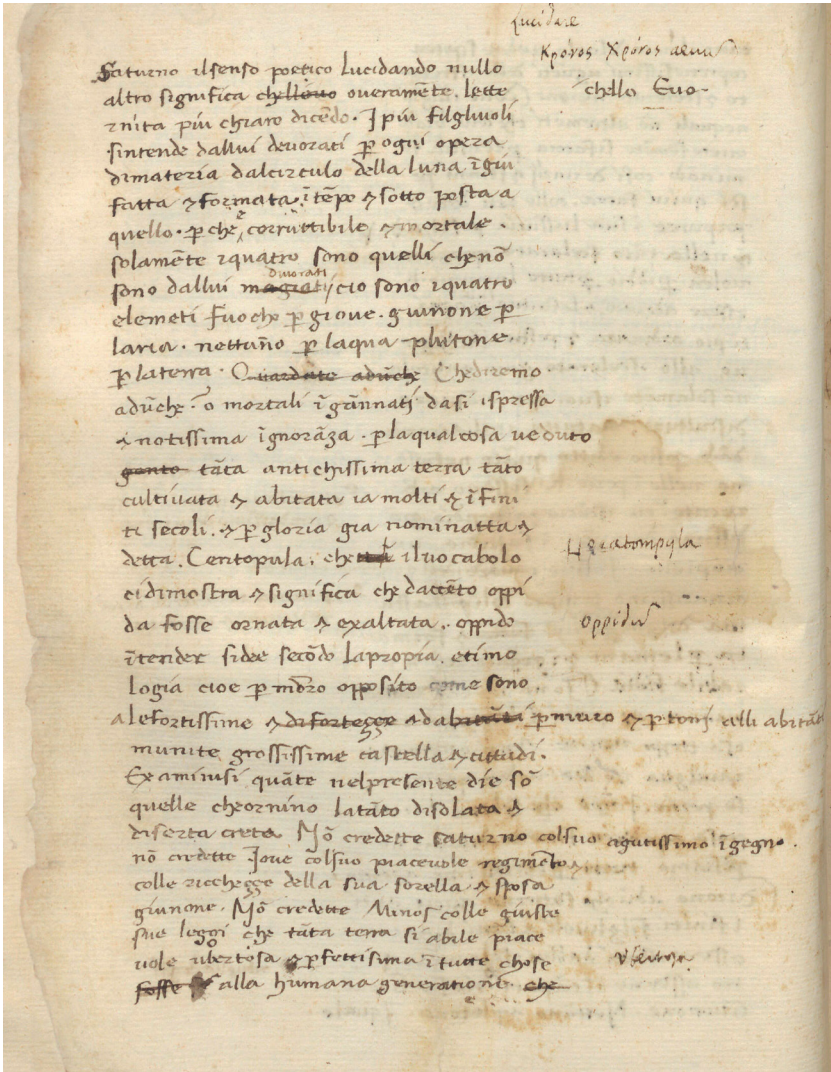 Lucidare
Κρόνος Χρόνος aevū
Saturno ilsenso poetico Lucidando nullo
altro significa chellouo overamēte. Lette chello Evo.
rnita piu chiaro dicēdo. I piu filglivoli
sintende dallui devorati ꝑ ogni opera
dimateria dalcirculo della luna ī giu
fatta & formata, ītēpo & sotto posta a
quello. ꝑ che e corruttibile & mortale.
solamēte iquatro sono quelli che nō
sono dallui māgiati divorati cio sono iquatro
elemeti Fuocho ꝑ giove. giunone ꝑ
laria. nettūno ꝑ laqua plutone.
ꝑ laterra. Guardate adūche Chediremo
adūche. o mortali ī gānnati dasi ispressa
& notissima ignorāza. ꝑ laqualcosa veduto
tāta antichissima terra tāto
cultivata & abitata ia molti & ī fini
ti secoli. & ꝑ gloria gia nominatta &
detta. Centopula. che ilvocabolo Hecatompyla
ci dimostra & significa che daccēto oppi
da fosse ornata & exaltata. oppido oppidū
ītender sidee secōdo lapropia. etimo
logia cioe ꝑ opposito come sono
Lefortissime & difortegge & dabitāti ꝑ muro & ꝑ torri elli abitāti
munite grossissime castella & cittadi.
Examinisi quāte nelpresente die sō
quelle cheornino latāto disolata &
diserta creta Nō credette saturno colsuo agutissimo īgegno.
nō credette Iove colsuo piacevole regimēto &
colle ricchegge della sua sorella & sposa
giunone. Nō credette Minos colle giuste
sue leggi che tāta terra si abile piace
vole ubertosa & ꝑfettisima ī tutte chose ubertosa
fosse alla humana generatione che